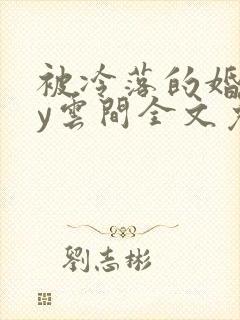 被冷落的婚
y雲間全文
劉志彬